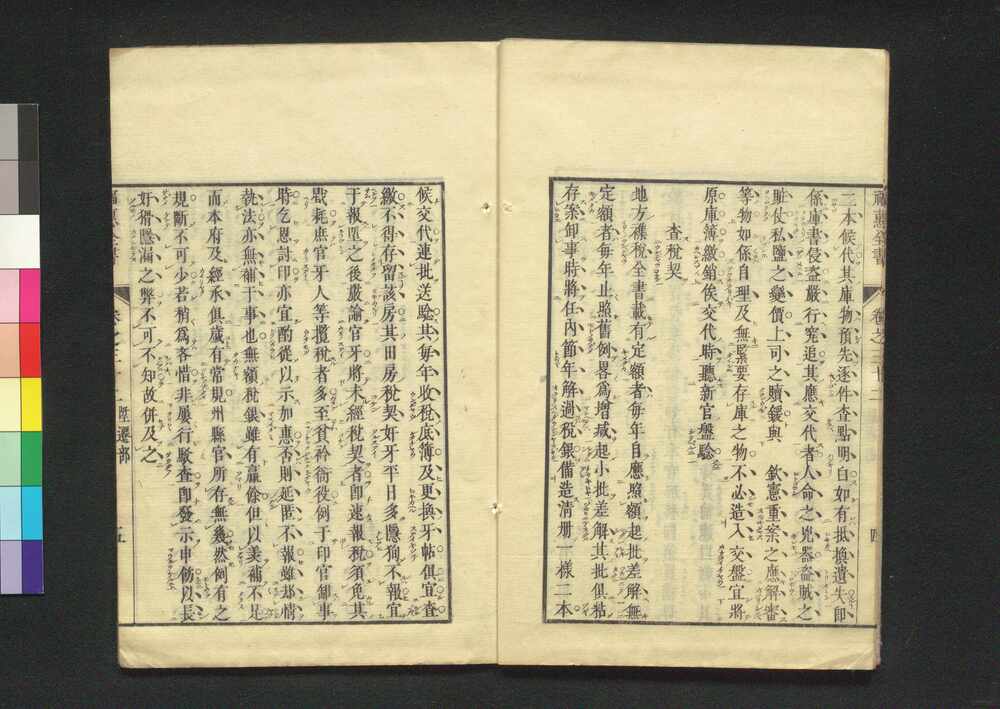 二本候代其庫物預先逐件查點明白如有抵換遺失即
係庫書侵盜嚴行究追其應交代者人命之兇器盜賊之
賍仗私鹽之變價上司之贖鍰與 欽憲重案之應解審
等物如係自理及無緊要存庫之物不必造入交盤宜將
原庫簿繳銷俟交代時聽新官盤驗
查稅契
地方襍稅全書載有定額者每年自應照額起批差解無
定額者每年止照舊例畧爲增減起小批差解其批俱粘
存案卸事時將任內節年解過稅銀備造清冊一樣二本
候交代連批送驗其每年收稅底簿及更換牙帖俱宜查
繳不得存留該房其田房稅契奸牙平日多隱狥不報宜
于報陞之後嚴諭官牙將未經稅契者卽速報稅須免其
戥耗庶官牙人等攬稅者多至貧衿衙役例于印官卸事
時乞恩討印亦宜酌從以示加惠否則延匿不報雖却情
執法亦無補于事也無額稅銀雖有贏餘但以羨補不足
而本府及經承俱歲有常規州縣官所存無幾然例有之
規斷不可少若稍爲吝惜非屢行駁查卽發示申飭以長
奸猾隱漏之弊不可不知故併及之
陞遷部
五